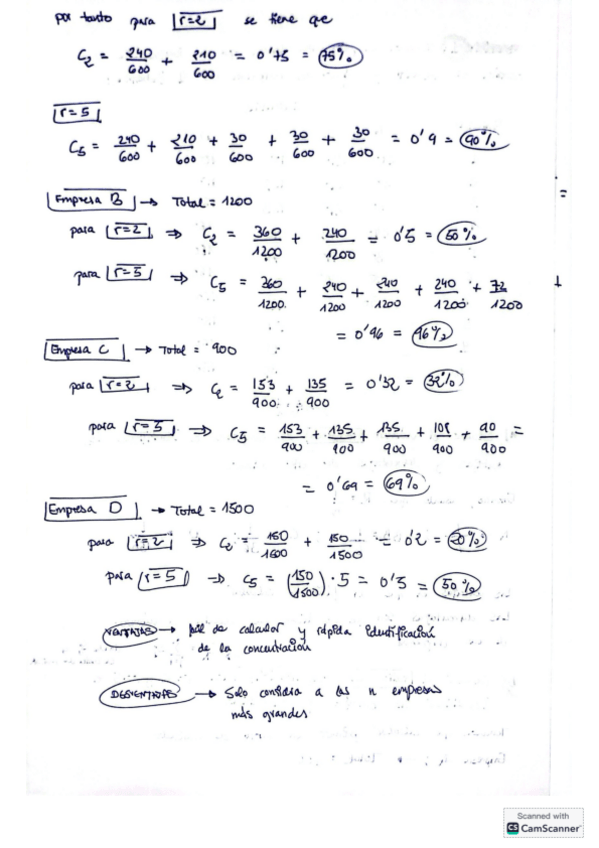 por tanto para r=2 se tiene que
C₂ = 240/600 + 210/600 = 0'75 = 75%
r=5
C₅ = 240/600 + 210/600 + 30/600 + 30/600 + 30/600 = 0'9 = 90%
Empresa B → Total = 1200
para r=2 ⇒ C₂ = 360/1200 + 240/1200 = 0'5 = 50%
para r=5 ⇒ C₅ = 360/1200 + 240/1200 + 240/1200 + 240/1200 + 72/1200
= 0'96 = 96%
Empresa C → Total = 900
para r=2 ⇒ C₂ = 153/900 + 135/900 = 0'32 = 32%
para r=5 ⇒ C₅ = 153/900 + 135/900 + 135/900 + 108/900 + 90/900 =
= 0'69 = 69%
Empresa D → Total = 1500
para r=2 ⇒ C₂ = 150/1500 + 150/1500 = 0'2 = 20%
para r=5 ⇒ C₅ = (150/1500) · 5 = 0'5 = 50%
VENTAJAS → fácil de calcular y rápida identificación
de la concentración
DESVENTAJAS → Solo considera a las n empresas
más grandes
Scanned with
CS CamScanner